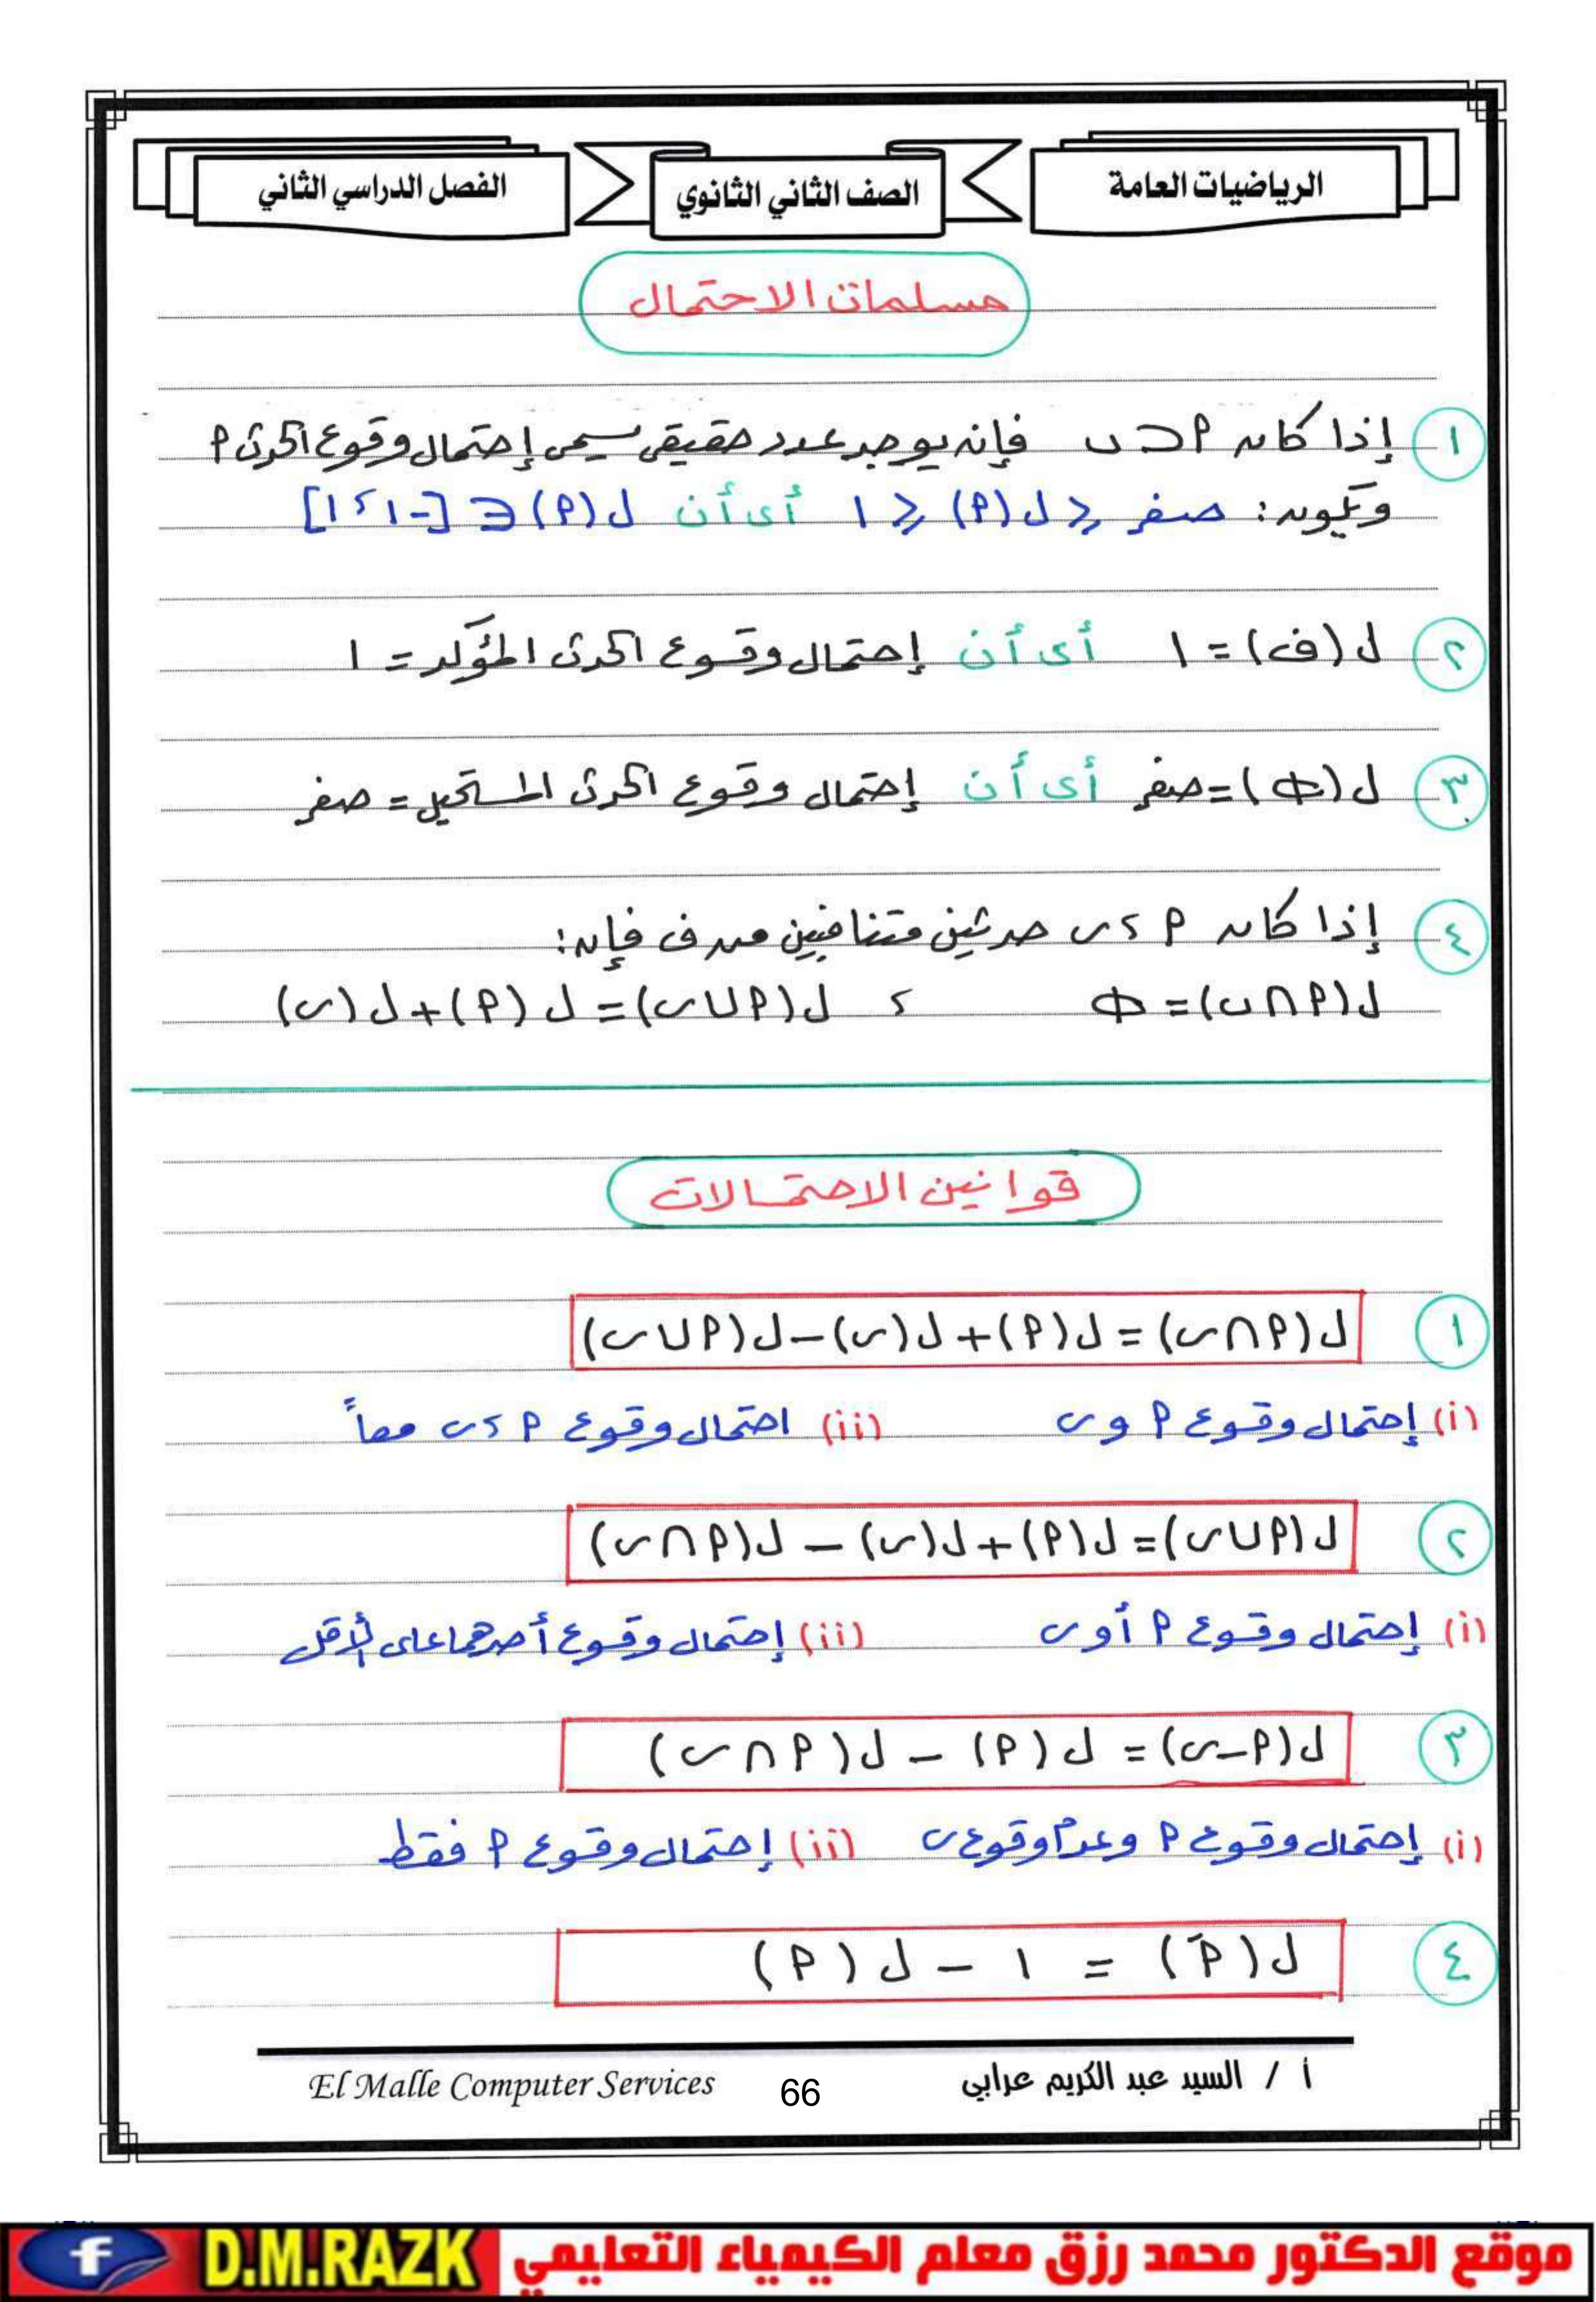 الرياضيات العامة
الصف الثاني الثانوي
الفصل الدراسي الثاني
مسلمات الاحتمال
١ إذا كان P ⊃ ں فإنه يوجد عدد حقيقي يسمى إحتمال وقوع الحدث P
ويكون: صفر ≤ ل(P) ≤ ١ أى أن ل(P) ∈ [-١، ١]
٢ ل(ف) = ١ أى أن إحتمال وقوع الحدث المؤكد = ١
٣ ل(Φ) = صفر أى أن إحتمال وقوع الحدث المستحيل = صفر
٤ إذا كان P ، ں حدثين متنافيين من ف فإن:
ل(P∩ں) = Φ ، ل(P∪ں) = ل(P) + ل(ں)
قوانين الاحتمالات
١ ل(P∩ں) = ل(P) + ل(ں) - ل(P∪ں)
(i) إحتمال وقوع P و ں (ii) احتمال وقوع P ، ں معاً
٢ ل(P∪ں) = ل(P) + ل(ں) - ل(P∩ں)
(i) إحتمال وقوع P أو ں (ii) إحتمال وقوع أحدهما على الأقل
٣ ل(P-ں) = ل(P) - ل(P∩ں)
(i) إحتمال وقوع P وعدم وقوع ں (ii) إحتمال وقوع P فقط
٤ ل(P̄) = ١ - ل(P)
أ / السيد عبد الكريم عرابي
66
El Malle Computer Services
موقع الدكتور محمد رزق معلم الكيمياء التعليمي
D.M.RAZK
f